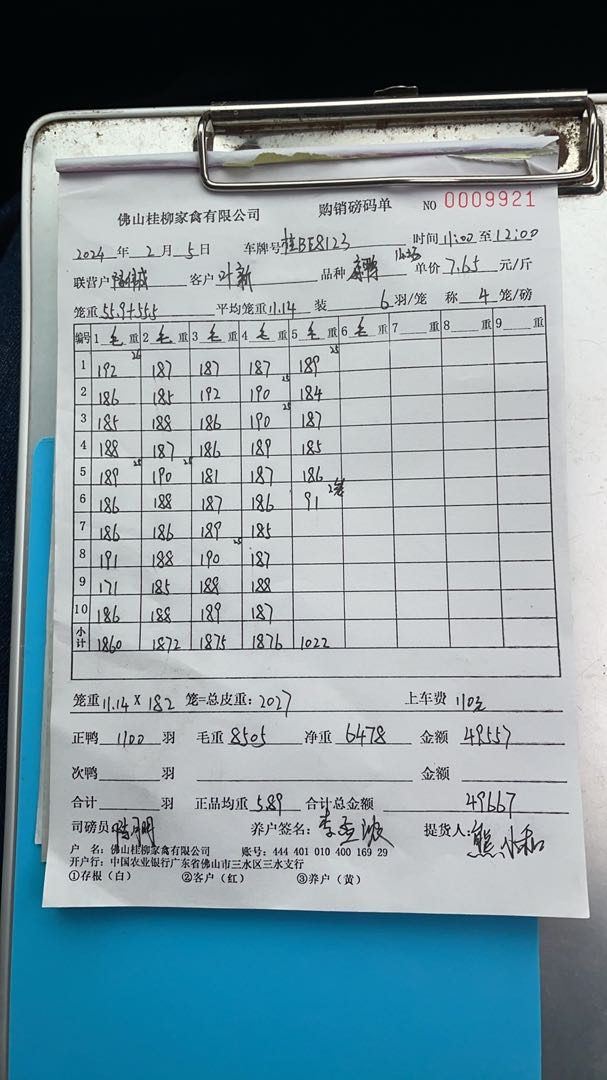 佛山桂柳家禽有限公司 购销磅码单 NO 0009921
2024 年 2 月 5 日 车牌号 桂BE8123 时间 11:00 至 12:00
联营户 客户 叶新 品种 单价 7.65 元/斤
笼重 55.9+55.5 平均笼重 11.14 装 6 羽/笼 称 4 笼/磅
编号 1 毛 重 2 毛 重 3 毛 重 4 毛 重 5 毛 重 6 毛 重 7 重 8 重 9 重
1 192 26 187 187 187 189 25
2 186 185 192 190 25 184
3 185 188 186 190 25 187
4 188 187 186 189 185
5 189 25 190 25 181 187 186
6 186 188 187 186 91 2笼
7 186 186 189 185
8 191 188 190 25 187
9 171 185 188 188
10 186 188 189 187
小计 1860 1872 1875 1876 1022
笼重 11.14 X 182 笼=总皮重: 2027 上车费 110元
正鸭 1100 羽 毛重 8505 净重 6478 金额 49557
次鸭 羽 金额
合计 羽 正品均重 5.89 合计总金额 49667
司磅员 养户签名: 李孟波 提货人: 熊小和
户 名: 佛山桂柳家禽有限公司 账号: 444 401 010 400 169 29
开户行: 中国农业银行广东省佛山市三水区三水支行
①存根（白） ②客户（红） ③养户（黄）